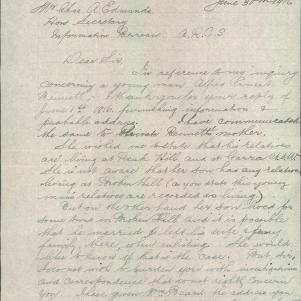 June 30th 1916
Mr Chas A. Edmunds
Hon Secretary
Information Bureau A.R.C.S
Dear Sir,
In reference to my inquiry
concerning a young man Alfred Ernest
Bennett. I thank you for your reply of
June 1916, furnishing information &
probable address. I have communicated
the same to Bennett's mother.
She wished me to state that his relatives
are living at Hill and at Yarra
She is not aware that her son has any relatives
living at Broken Hill (as you state this young
man's relatives are recorded as living)
But on the other hand her son lived for
some time in Broken Hill and it is possible
that he married & left his wife & family
family, there, when enlisting. She would
like to know if that is the case. But, Sir,
I do not wish to burden you with
and correspondence that does not rightly concern
you. I have given Mrs the address you